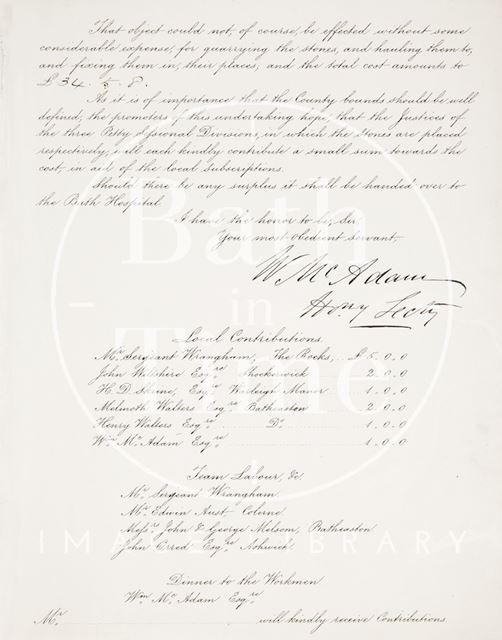 That object could not, of course, be effected without some
considerable expense, for quarrying the stones, and hauling them to,
and fixing them in, their places, and the total cost amounts to
£34. 5. 8.
As it is of importance that the County bounds should be well
defined, the promoters of this undertaking hope, that the Justices of
the three Petty Sessional Divisions, in which the Stones are placed
respectively, will each kindly contribute a small sum towards the
cost, in aid of the local Subscriptions.
Should there be any surplus it shall be handed over to
the Bath Hospital.
I have the honor to be, Sir,
Your most obedient Servant,
W. McAdam
Hony Secty
Local Contributions.
Mr. Serjeant Wrangham, The Rocks, .. £5.0.0
John Wiltshire Esqre Shockerwick 2.0.0
H. D. Skrine, Esqre Warleigh Manor 1.0.0
Melmoth Walters Esqre Batheaston 2.0.0
Henry Walters Esqre Do 1.0.0
Wm. Mc.Adam Esqre 1.0.0
Team Labour, &c.
Mr. Serjeant Wrangham.
Mr. Edwin Aust Colerne
Messrs. John & George Melsom, Batheaston
John Esqre Ashwick
Dinner to the Workmen
Wm. Mc.Adam Esqre
Mr. will kindly receive Contributions.
Bath
in
Time
IMAGE LIBRARY